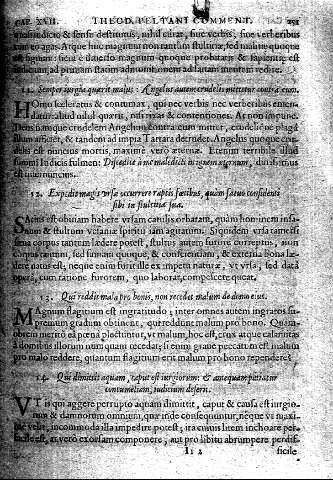 CAP. XVII. THEOD. PELTANI COMMENT. 251
iudicio & sensu destitutus, nihil curat, siue verbis, siue verberibus
cum eo agas. Atque hic magis
11. Semper iurgia quærit malus: Angelus autem crudelis mittetur contra eum.
HOmo sceleratus & contumax, qui nec verbis nec verberibus emen-
datur, aliud nihil quærit, nisi rixas & contentiones. At non impune.
Deus namque crudelem Angelum contra eum mittet, crudelique plaga
illum afficit, & tandem ad ima Tartara demerget. Angelus quoque cru-
delis est omnibus mors, maximè verò æterna. Etenim terribile illud
summi Iudicis fulmen: Discedite à me maledicti in ignem æternum, durissimus
est internuncius.
12. Expedit magis vrsæ occurrere raptis fœtibus, quàm fatuo confidenti
sibi in stultitia sua.
SAtius est obuiam habere vrsam catulis orbatam, quàm hominem insa-
num & stultum vesaniæ spiritu iam agitatum. Siquidem vrsa tametsi
sensa corpus tantùm lædere potest, stultus autem furore correptus, non
corpus tantùm, sed famam quoque, & conscientiam, & externa bona læ-
dere natus est, neque enim furit ille ex impetu naturæ, vt vrsa, sed data
opera, cum ratione furorem, quo laborat, compescere queat.
13. Qui reddit mala pro bonis, non recedet malum de domo eius.
MAgnum flagitium est ingratitudo; inter omnes autem ingratos su-
premum gradum obtinent, qui reddunt malum pro bono. Quam-
obrem meritò ea pœna plectuntur, vt malum, hoc est, crux atque calamitas
à domibus illorum nunquam recedat; si enim grande peccatum est malum
pro malo reddere, quantum flagitium erit malum pro bono rependere?
14. Qui dimittit aquam, caput est iurgiorum: & antequam patiatur
contumeliam, iudicium deserit.
VT is qui aggere perrupto aquam dimittit, caput & causa est iurgio-
rum & damnorum omnium, quæ inde consequuntur, neque vt maxi-
mè velit, incommoda illa impedire potest; ita cuiuis litem inchoare per-
facile est, at verò exorsam componere, aut pro libitu abrumpere perdif-
Ii 2 ficile